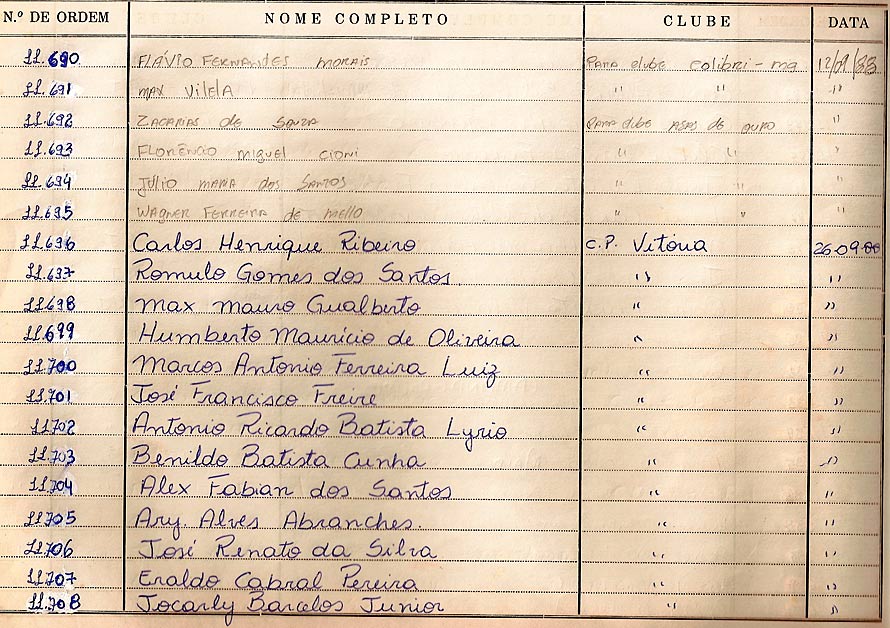 N.º DE ORDEM NOME COMPLETO CLUBE DATA
11.690 FLÁVIO FERNANDES MORAIS PARA clube colibri - mg 12/09/83
11.691 MAX VILELA " " "
11.692 ZACARIAS de SOUZA PARA clube ASAS DE OURO "
11.693 FLORÊNCIO miguel cioni " " "
11.694 JÚLIO MARIA dos SANTOS " " "
11.695 WAGNER FERREIRA de Mello " " "
11.696 Carlos Henrique Ribeiro C.P. Vitória 26.09
11.697 Romulo Gomes dos Santos " "
11.698 Max Mauro Gualberto " "
11.699 Humberto Maurício de Oliveira " "
11.700 Marcos Antonio Ferreira Luiz " "
11.701 José Francisco Freire " "
11.702 Antonio Ricardo Batista Lyrio " "
11.703 Benildo Batista Cunha " "
11.704 Alex Fabian dos Santos " "
11.705 Ary. Alves Abranches. " "
11.706 José Renato da Silva " "
11.707 Eraldo Cabral Pereira " "
11.708 Jocarly Barcelos Junior " "